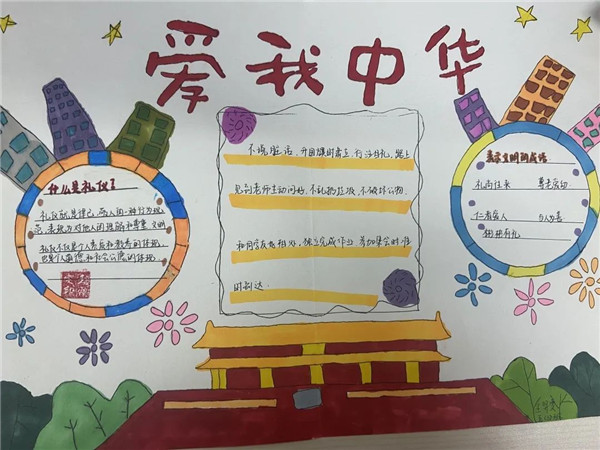 爱我中华
什么是礼仪?
礼仪就是律己、敬人的一种行为规
范,表现为对他人的理解和尊重 文明
礼仪不仅是个人素质和教养的体现,
也是个人道德和社会公德的体现
不说脏话、升国旗时肃立、行注目礼、路上
见到老师主动问好、不乱扔垃圾、不破坏公物、
和同学友好相处、独立完成作业 参加集会时准
时到达.
表示文明的成语
礼尚往来
仁者爱人 与人为善
彬彬有礼